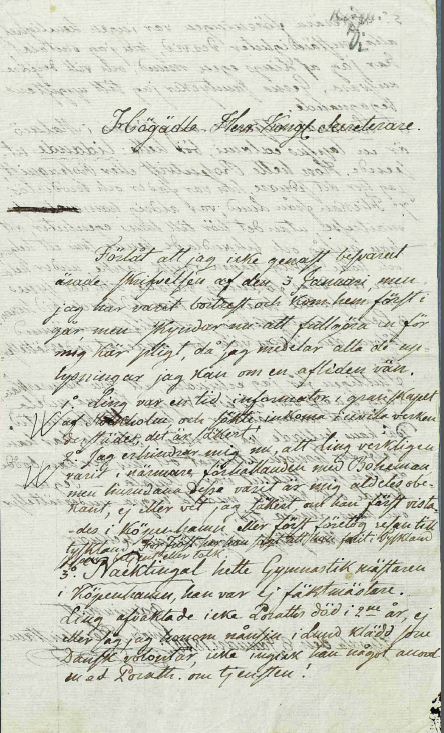 Högädle Herr Kongl. Secreterare.
Förlåt att jag icke genast besvarat
ärade skrifvelsen af den 3 Januari, men
jag har varit bortrest och kom hem först i
går men skyndar nu att fullgöra en för
mig kär pligt, då jag medelar alla de up-
lysningar jag kan om en afliden vän.
1º Ling var en tid informator i grannskapet
af Stockholm och sökte inkomma i civila verken
de Städes, det är säkert.
2º Jag erhindrar mig nu, att Ling verkligen
varit i närmare förhållanden med Boheman
men hurudana dessa varit är mig aldeles obe-
kant, ej eller vet jag säkert om han först vista-
des i Köpenhamn eller först företog resan till
Tyskland,
eller tolk.
3º. Nachtingal hette Gymnastik mästaren
i Köpenhamn, han var ej fäktmästare.
Ling afvaktade icke Poraths död i 2ne år, ej
eller såg jag honom nånsin i Lund klädd som
Dansk volontär, icke ingick han något accord
med Porath om tjensten!